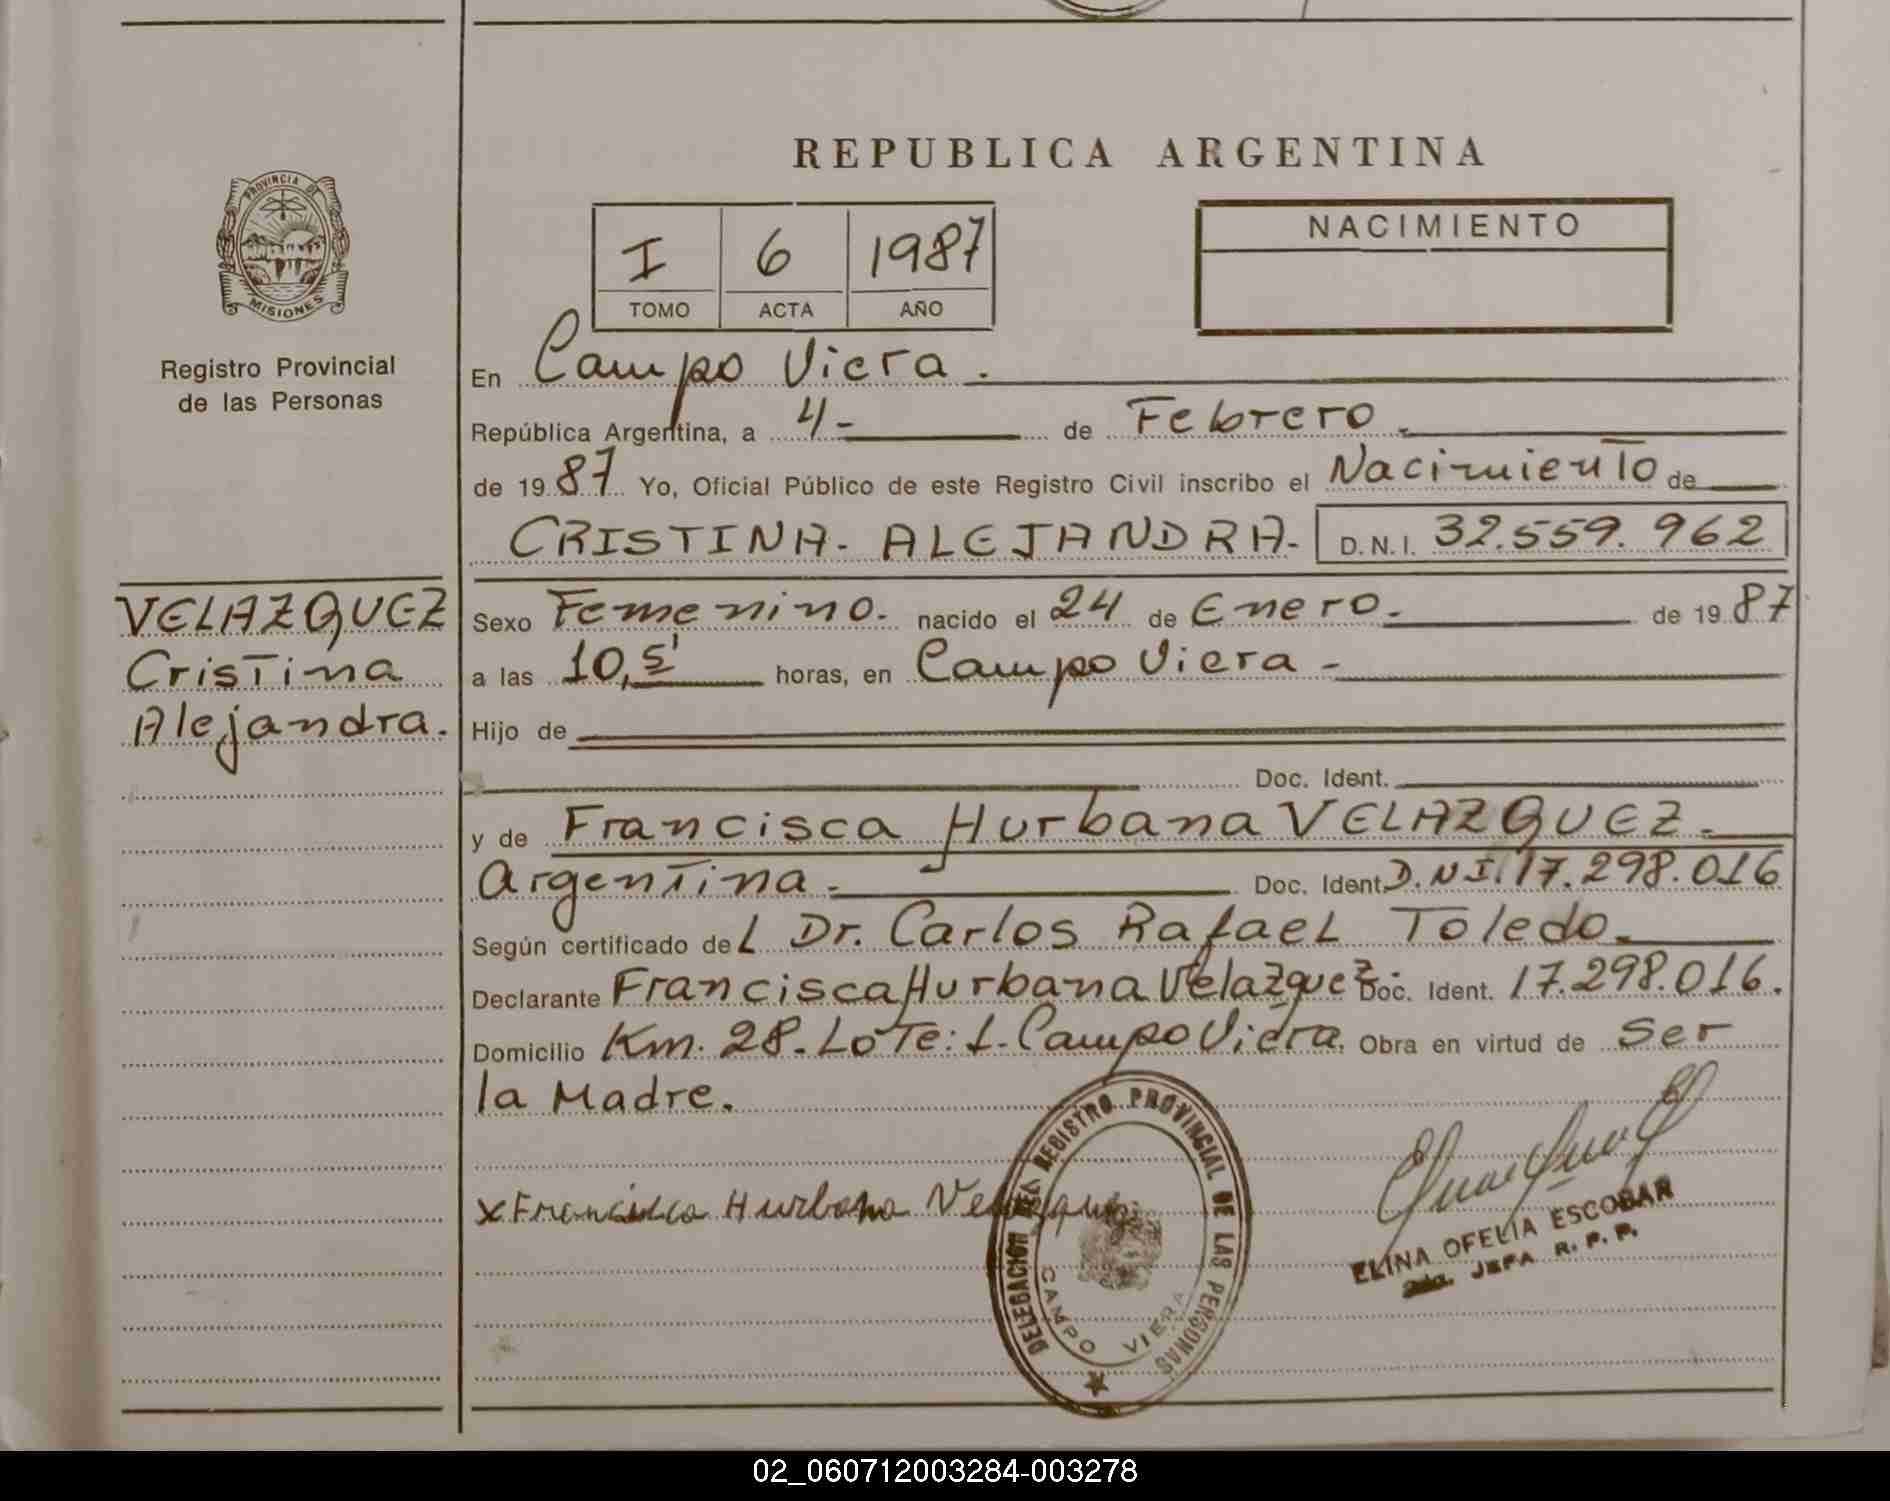 REPUBLICA ARGENTINA
PROVINCIA DE
MISIONES
Registro Provincial
de las Personas
I 6 1987
TOMO ACTA AÑO
NACIMIENTO
En Campo Viera.
República Argentina, a 4- de Febrero.
de 1987 Yo, Oficial Público de este Registro Civil inscribo el Nacimiento de
CRISTINA- ALEJANDRA- D.N.I. 32.559.962
VELAZQUEZ
Cristina
Alejandra.
Sexo Femenino. nacido el 24 de Enero. de 1987
a las 10,5' horas, en Campo Viera -
Hijo de
Doc. Ident.
y de Francisca Hurbana VELAZQUEZ.
Argentina. Doc. Ident. D.N.I. 17.298.016
Según certificado del Dr. Carlos Rafael Toledo.
Declarante Francisca Hurbana Velazquez. Doc. Ident. 17.298.016.
Domicilio Km. 28. Lote: 1. Campo Viera. Obra en virtud de Ser
la Madre.
x Francisca Hurbana Velazquez
DELEGACION DEL REGISTRO PROVINCIAL DE LAS PERSONAS
CAMPO VIERA
ELINA OFELIA ESCOBAR
2da. JEFA R. P. P.
02_060712003284-003278